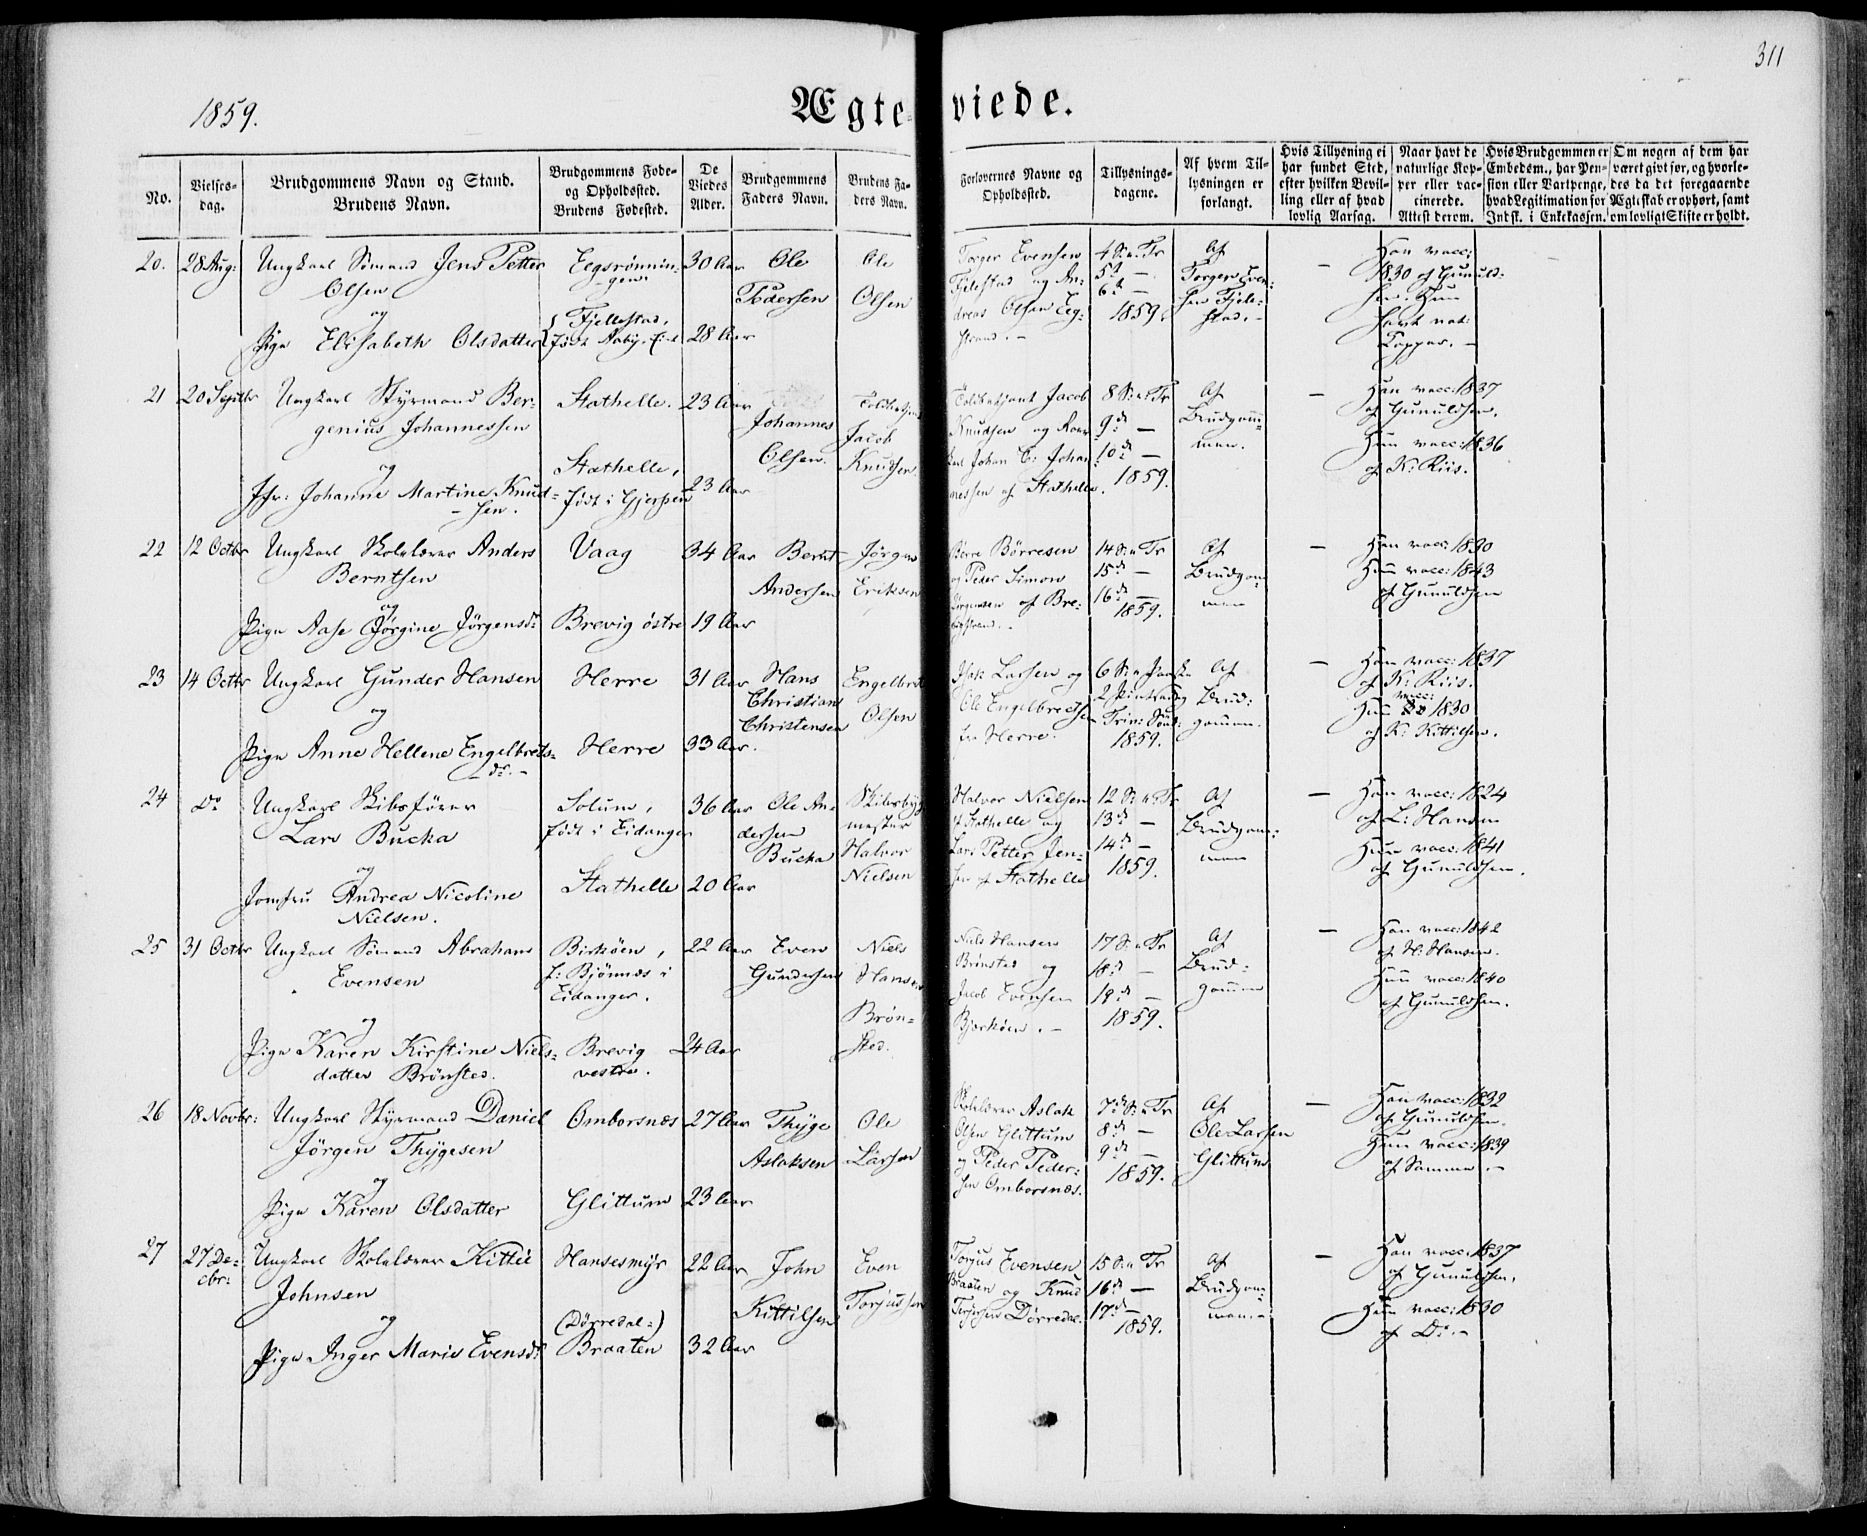 311
1859.
Ægte-viede.
No.
Vielses-
dag.
Brudgommens Navn og Stand.
Brudens Navn.
Brudgommens Føde-
og Opholdssted.
Brudens Fødested.
De
Viedes
Alder.
Brudgommens
Faders Navn.
Brudens Fa-
ders Navn.
Forlovernes Navne og
Opholdssted.
Tillysnings-
dagene.
Af hvem Til-
lysningen er
forlangt.
Hvis Tillysning ei
har fundet Sted,
efter hvilken Bevil-
ling eller af hvad
lovlig Aarsag.
Naar havt de
naturlige Kop-
per eller vac-
cinerede.
Attest derom.
Hvis Brudgommen er
Embedsm., har Pen-
sion eller Vartpenge,
hvad Legitimation for
Indsk. i Enkekassen.
Om nogen af dem har
været gift før, og hvorle-
des da det foregaaende
Ægteskab er ophørt, samt
om lovligt Skifte er holdt.
20. 28 Aug:
Ungkarl Sømand Jens Petter
Olsen
og
Pige Elisabeth Olsdatter
Eegsrønnin-
gen.
Fjellestad,
født Aaby
30 Aar
28 Aar
Ole
Pedersen
Ole
Olsen
Torger Evensen
Fjelestad og An-
dreas Olsen Eeg-
strand.
4 S: e: Tr
5t —
6t —
1859.
Af
Torger Even-
sen Fjele-
stad.
—
Han vacc:
1830 af Gunuld-
sen. Hun
havt nat:
Kopper. —
21 20 Septbr
Ungkarl Styrmand Ber-
genius Johannessen
og
Jfr: Johanne Martine Knud-
sen.
Stathelle.
Stathelle,
født i Gjerpen
23 Aar
23 Aar
Johannes
Olsen.
Jacob
Knudsen
Jacob
Knudsen og
Johan C: Johan
nessen af Stathelle.
8 S: e: Tr
9d —
10d —
1859.
Af
Brudgom-
men.
—
Han vacc: 1837
af Gunuldsen.
Hun vacc: 1836
af K: Riis.
22 12 Octbr
Ungkarl Skolelærer Anders
Berntsen
og
Pige Aase Jørgine Jørgensd:
Vaag
Brevig østre
34 Aar
19 Aar
Bernt
Andersen
Jørgen
Eriksen
Børre Børresen
og Peder Simon
Jørgensen af Bre-
vigstrand.
14 S: e: Tr
15d —
16d —
1859.
Af
Brudgom-
men
—
Han vacc: 1830
Hun vacc: 1843
af Gunuldsen
23 14 Octbr
Ungkarl Gunder Hansen
og
Pige Anne Hellene Engelbrets-
dr. —
Herre
Herre
31 Aar
33 Aar.
Hans
Christian
Christensen
Engelbret
Olsen
Isak Larsen og
Ole Engelbredtsen
fra Herre.
6 S: e: Paaske
2 Pintsedag
Trin: Sønd:
1859.
Af
Brud-
gommen.
—
Han vacc: 1837
af K: Riis.
Hun vacc: 1830
af K: Kittilsen.
24 Do
Ungkarl Skibsfører
Lars Bucka
og
Jomfru Andrea Nicoline
Nielsen.
Solum,
født i Eidanger
Stathelle
36 Aar
20 Aar
Ole An-
dersen
Bucka
Skibsbyg
mester
Halvor
Nielsen
Halvor Nielsen
af Stathelle og
Lars Petter Jen-
sen af Stathelle
12 S: e: Tr
13d —
14d —
1859.
Af
Brudgom-
men
—
Han vacc: 1824
af L: Hansen
Hun vacc: 1841
af Gunuldsen.
25 31 Octbr
Ungkarl Sømand Abraham
Evensen
og
Pige Karen Kirstine Niels-
datter Brønsted.
Birkøen,
f: Bjønnæs i
Eidanger.
Brevig
vestre.
22 Aar
24 Aar
Even
Gundersen
Niels
Hansen
Brøn-
sted.
Niels Hansen
Brønsted og
Jacob Evensen
Bjerkøen. —
17 S: e: Tr
18d —
19d —
1859.
Af
Brud-
gommen
—
Han vacc: 1842
af H: Hansen.
Hun vacc: 1840
af Gunuldsen.
26 18 Novbr:
Ungkarl Styrmand Daniel
Jørgen Thygesen
og
Pige Karen Olsdatter
Omborsnæs
Glittum
27 Aar
23 Aar
Thyge
Aslaksen
Ole
Larsen
Skolelærer Aslak
Olsen Glittum
og Peder Peder-
sen Omborsnæs.
7de S: e: Tr
8d —
9d —
1859.
Af
Ole Larsen
Glittum
—
Han vacc: 1832
af Gunuldsen.
Hun vacc: 1839
af Samme. —
27 27 De-
cbr:
Ungkarl Skolelærer Kittil
Johnsen
og
Pige Inger Marie Evensd:
Hansesmyr
(Dørredal:)
Braaten
22 Aar
32 Aar
John
Kittilsen
Even
Torjussen
Torjus Evensen
Braaten og Knud
Terjesen Dørredal.
15 S: e: Tr
16d —
17d —
1859.
Af
Brudgom-
men. —
—
Han vacc: 1837
af Gunuldsen.
Hun vacc: 1830
af Do. —